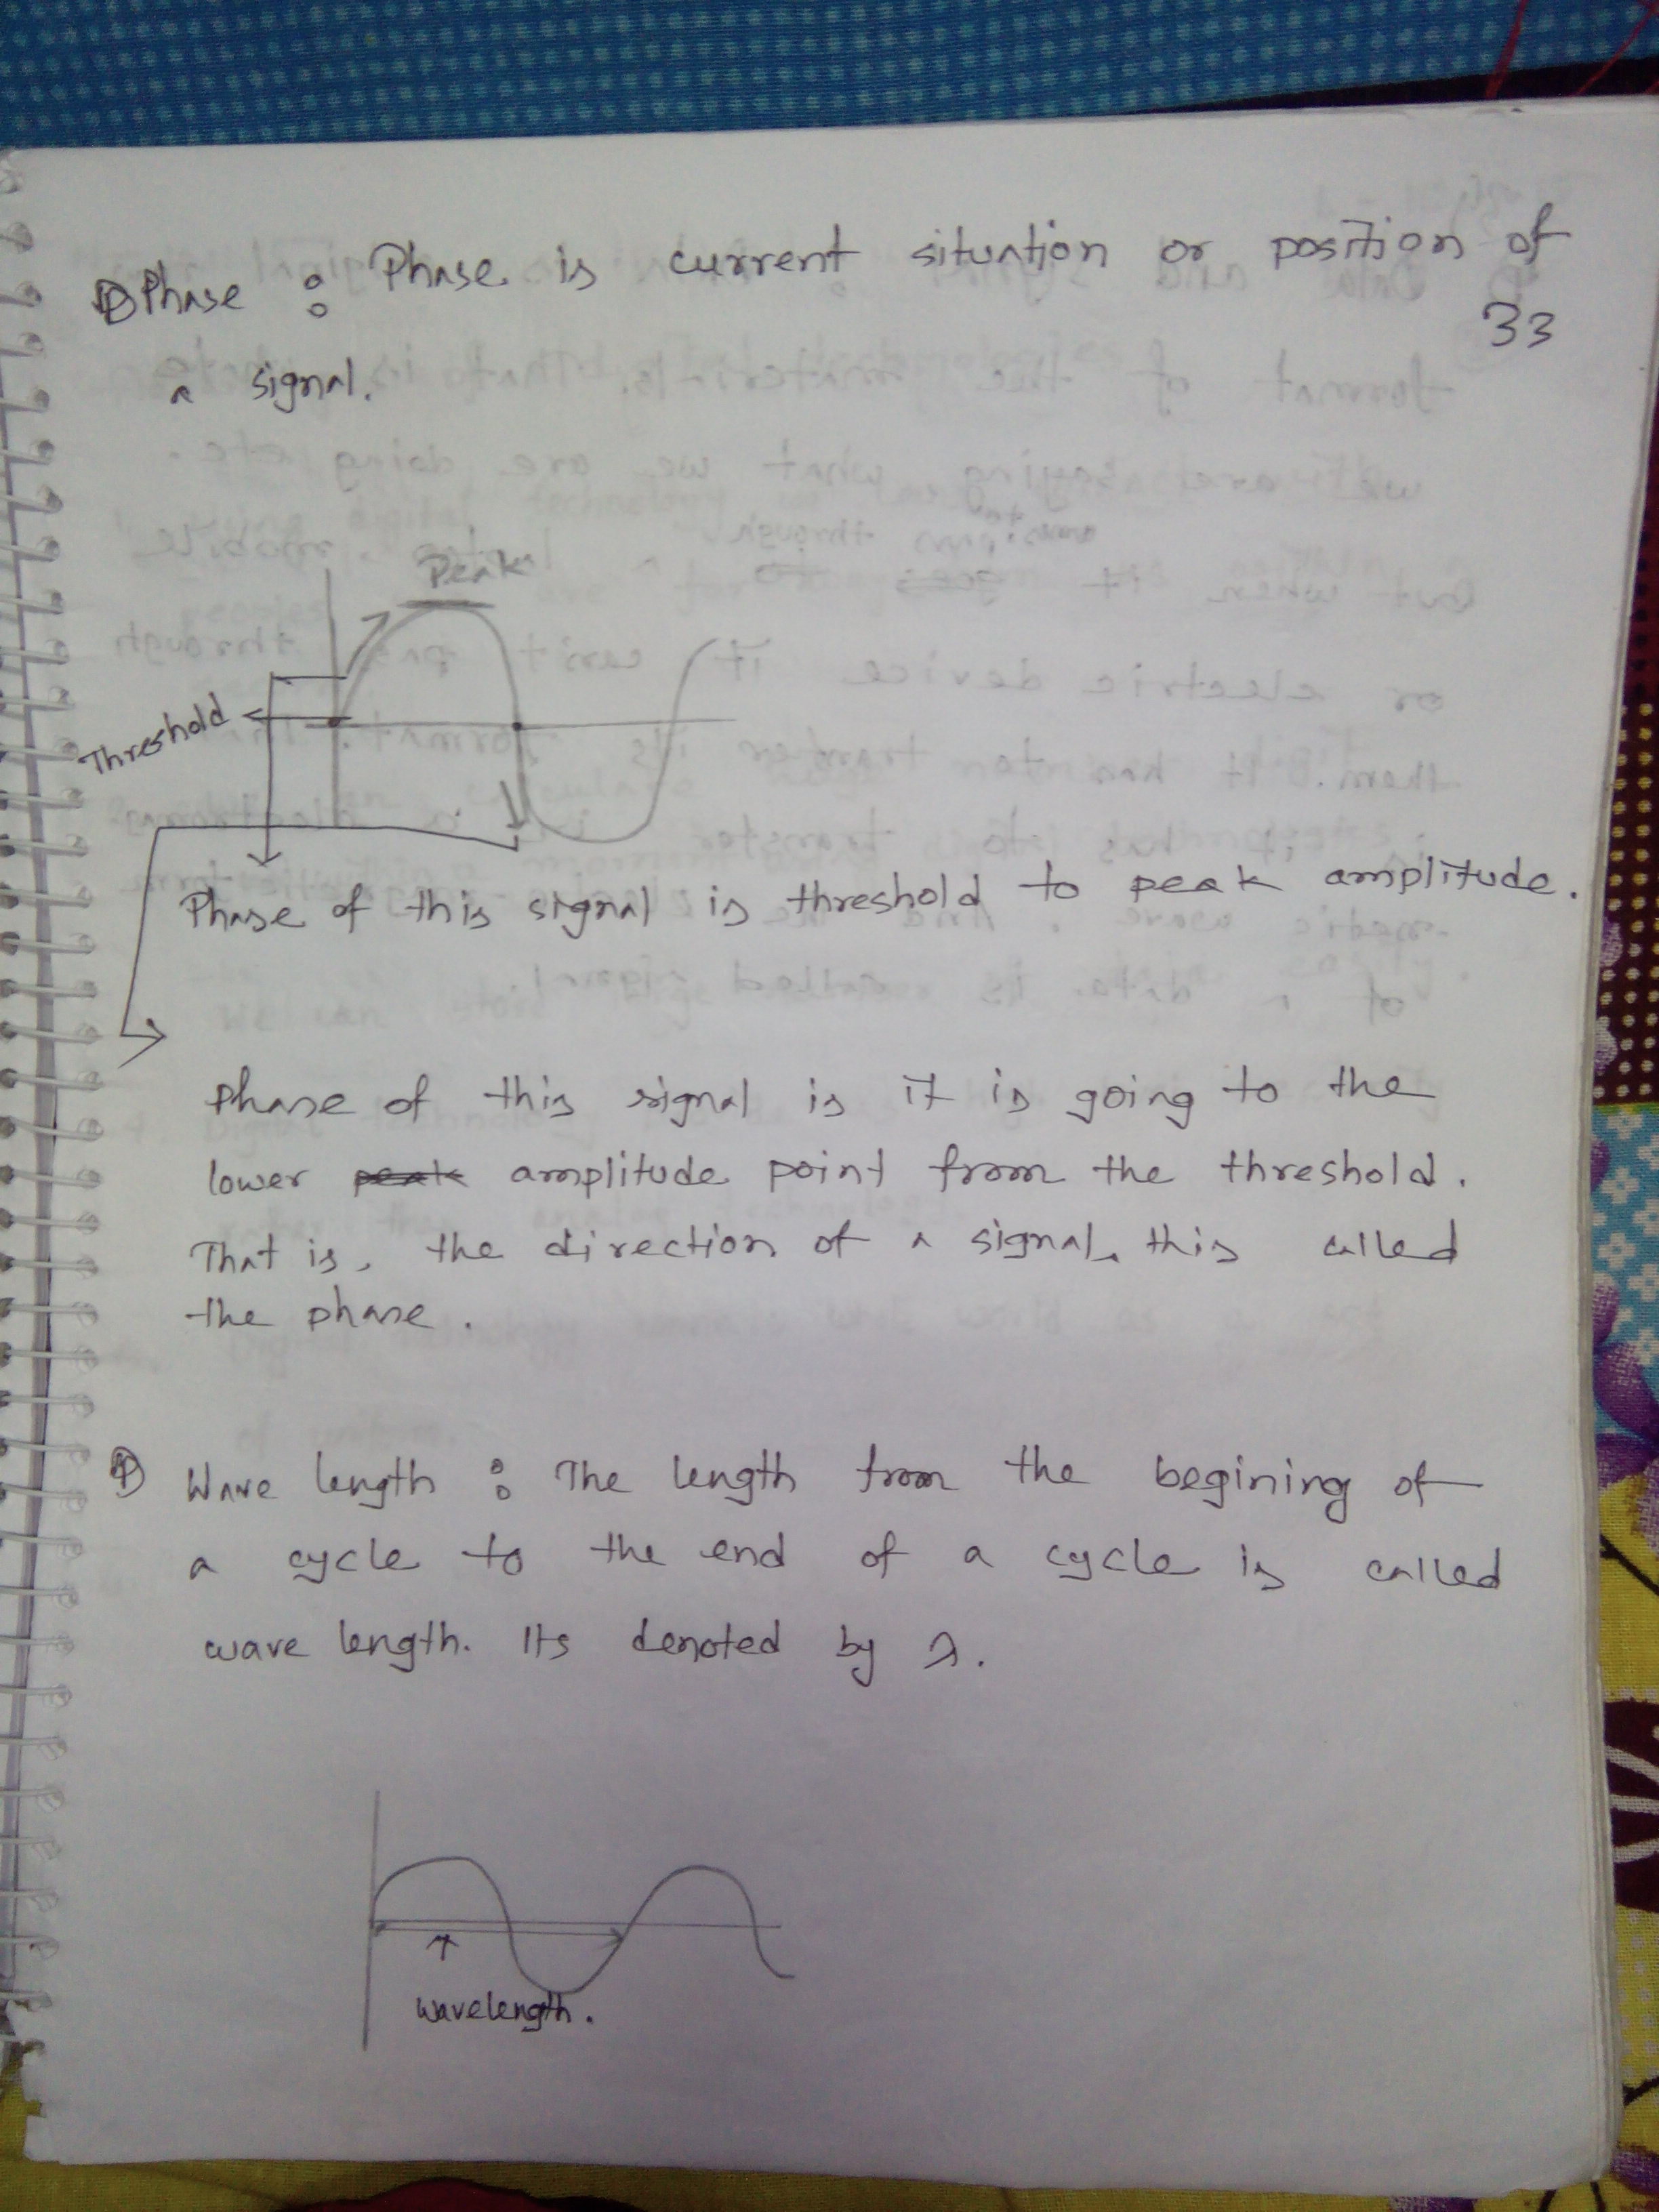 Phase : Phase is current situation or position of
33
a signal.
Peak
Threshold
Phase of this signal is threshold to peak amplitude.
phase of this signal is it is going to the
lower peak amplitude point from the threshold.
That is, the direction of a signal, this called
the phase.
Wave length : The length from the begining of
a cycle to the end of a cycle is called
wave length. Its denoted by λ.
wavelength.